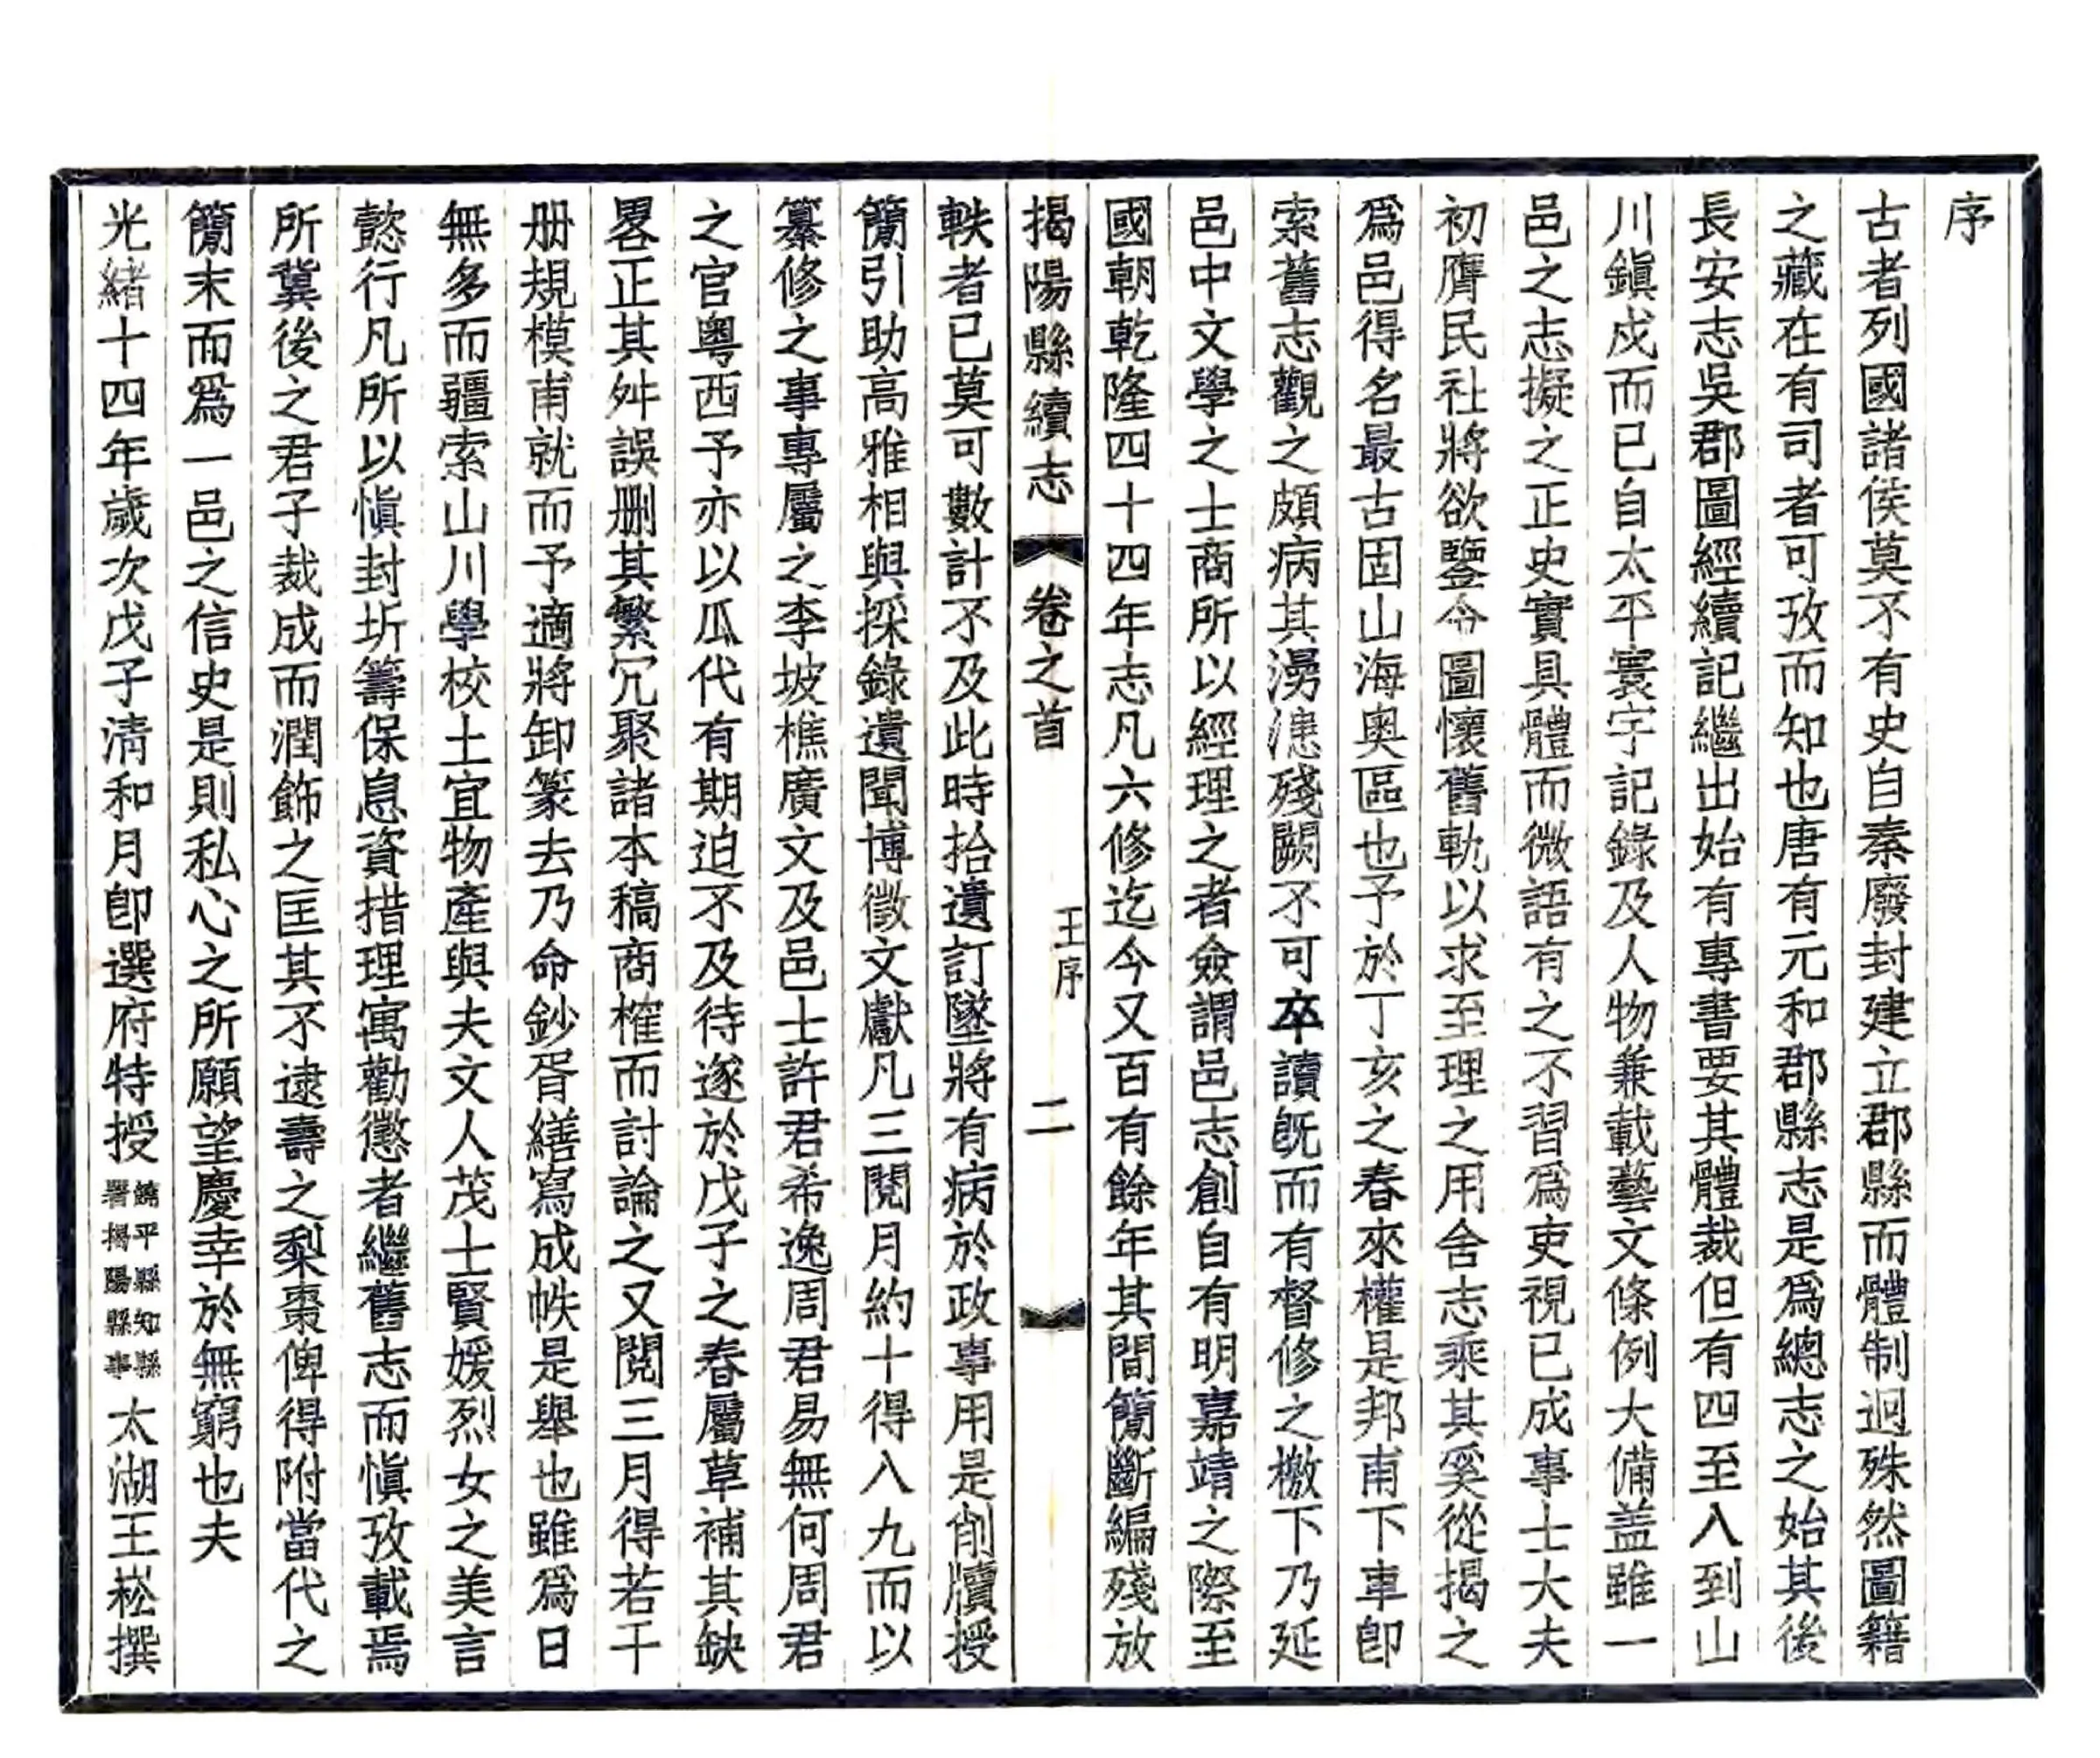 序
古者列國諸侯莫不有史自秦廢封建立郡縣而體制迥殊然圖籍
之藏在有司者可攷而知也唐有元和郡縣志是爲總志之始其後
長安志吳郡圖經續記繼出始有專書要其體裁但有四至入到山
川鎭戍而已自太平寰宇記錄及人物兼載藝文條例大備盖雖一
邑之志擬之正史實具體而微語有之不習爲吏視已成事士大夫
初膺民社將欲鑒今圖懷舊軌以求至理之用舍志乘其奚從揭之
爲邑得名最古固山海奧區也予於丁亥之春來權是邦甫下車卽
索舊志觀之頗病其漫漶殘闕不可卒讀旣而有督修之檄下乃延
邑中文學之士商所以經理之者僉謂邑志創自有明嘉靖之際至
國朝乾隆四十四年志凡六修迄今又百有餘年其間簡斷編殘放
揭陽縣續志 卷之首 王序 二
軼者已莫可數計不及此時拾遺訂墜將有病於政事用是削牘授
簡引助高雅相與採錄遺聞博徵文獻凡三閱月約十得八九而以
纂修之事專屬之李坡樵廣文及邑士許君希逸周君易無何周君
之官粤西予亦以瓜代有期迫不及待遂於戊子之春屬草補其缺
畧正其舛誤删其繁冗聚諸本稿商榷而討論之又閱三月得若干
册規模甫就而予適將卸篆去乃命鈔胥繕寫成帙是舉也雖爲日
無多而疆索山川學校土宜物產與夫文人茂士賢媛烈女之美言
懿行凡所以愼封圻籌保息資措理寓勸懲者繼舊志而愼攷載焉
所冀後之君子裁成而潤飾之匡其不逮壽之梨棗俾得附當代之
簡末而爲一邑之信史是則私心之所願望慶幸於無窮也夫
光緒十四年歲次戊子清和月卽選府特授饒平縣知縣署揭陽縣事太湖王崧撰